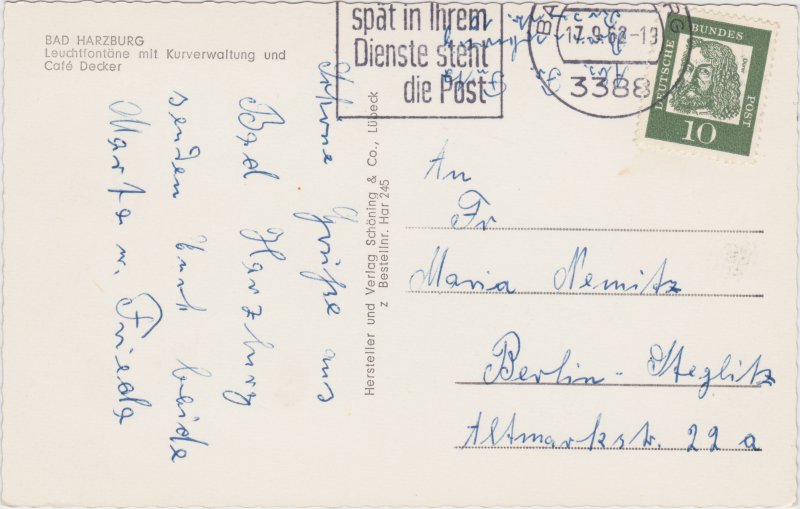 BAD HARZBURG
Leuchtfontäne mit Kurverwaltung und
Café Decker
spät in Ihrem
Dienste steht
die Post
17.9.62-13
3388
DEUTSCHE BUNDESPOST
Dürer
10
Schöne Grüße aus
Bad Harzburg
senden Euch beide
Marta u. Frieda
Hersteller und Verlag Schöning & Co., Lübeck
z Bestellnr. Har 245
An
Fr
Maria Nemitz
Berlin-Steglitz
Altmarkstr. 22 a